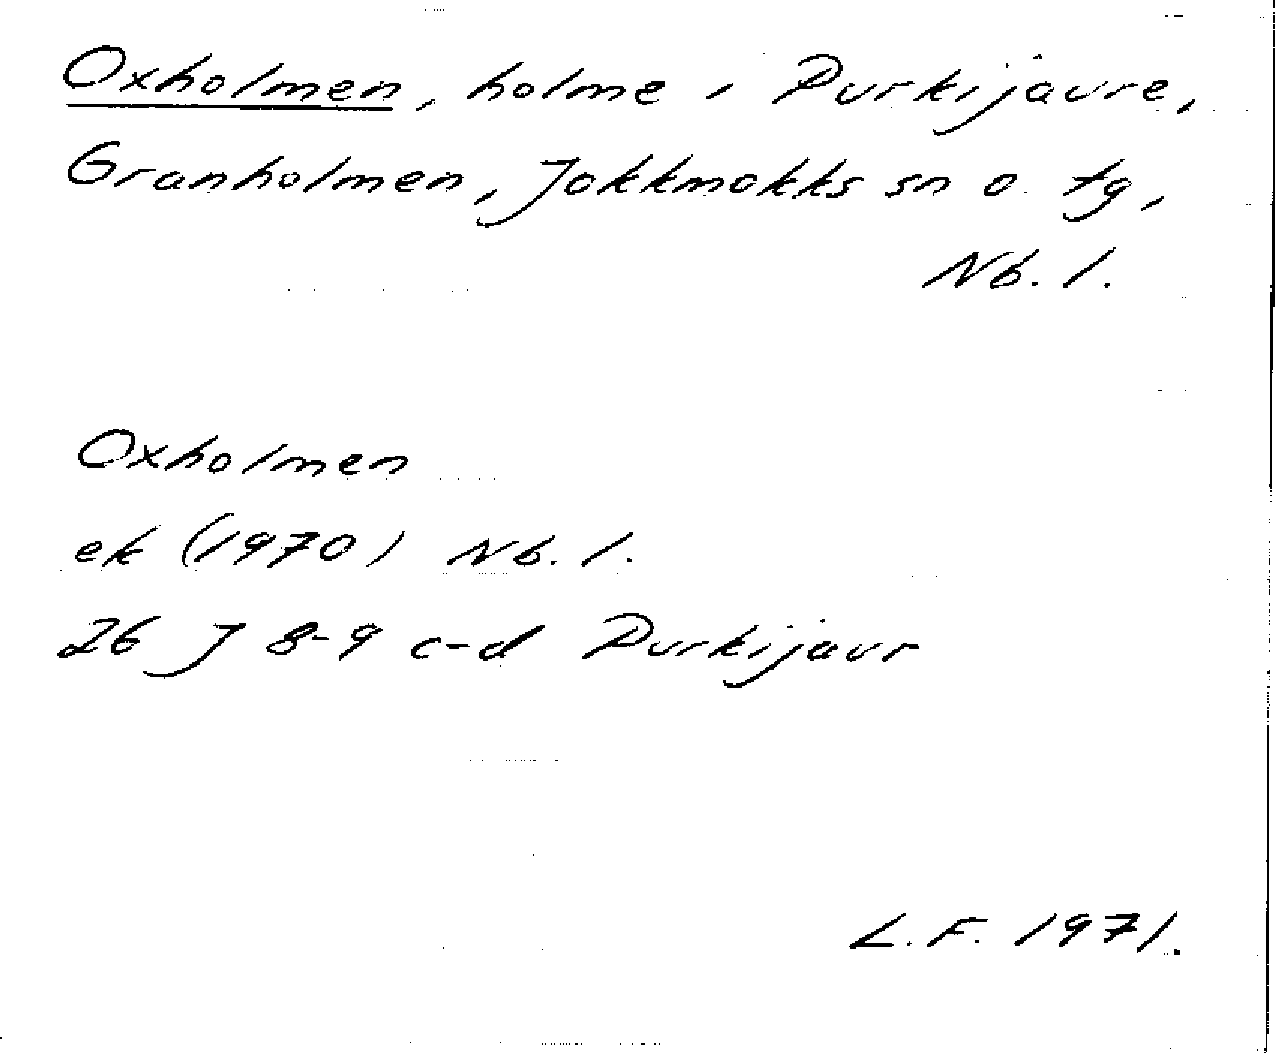 Oxholmen, holme i Purkijaure,
Granholmen, Jokkmokks sn o. tg,
Nb. l.
Oxholmen
ek (1970) Nb. l.
26 J 8-9 c-d Purkijaur
L.F. 1971.